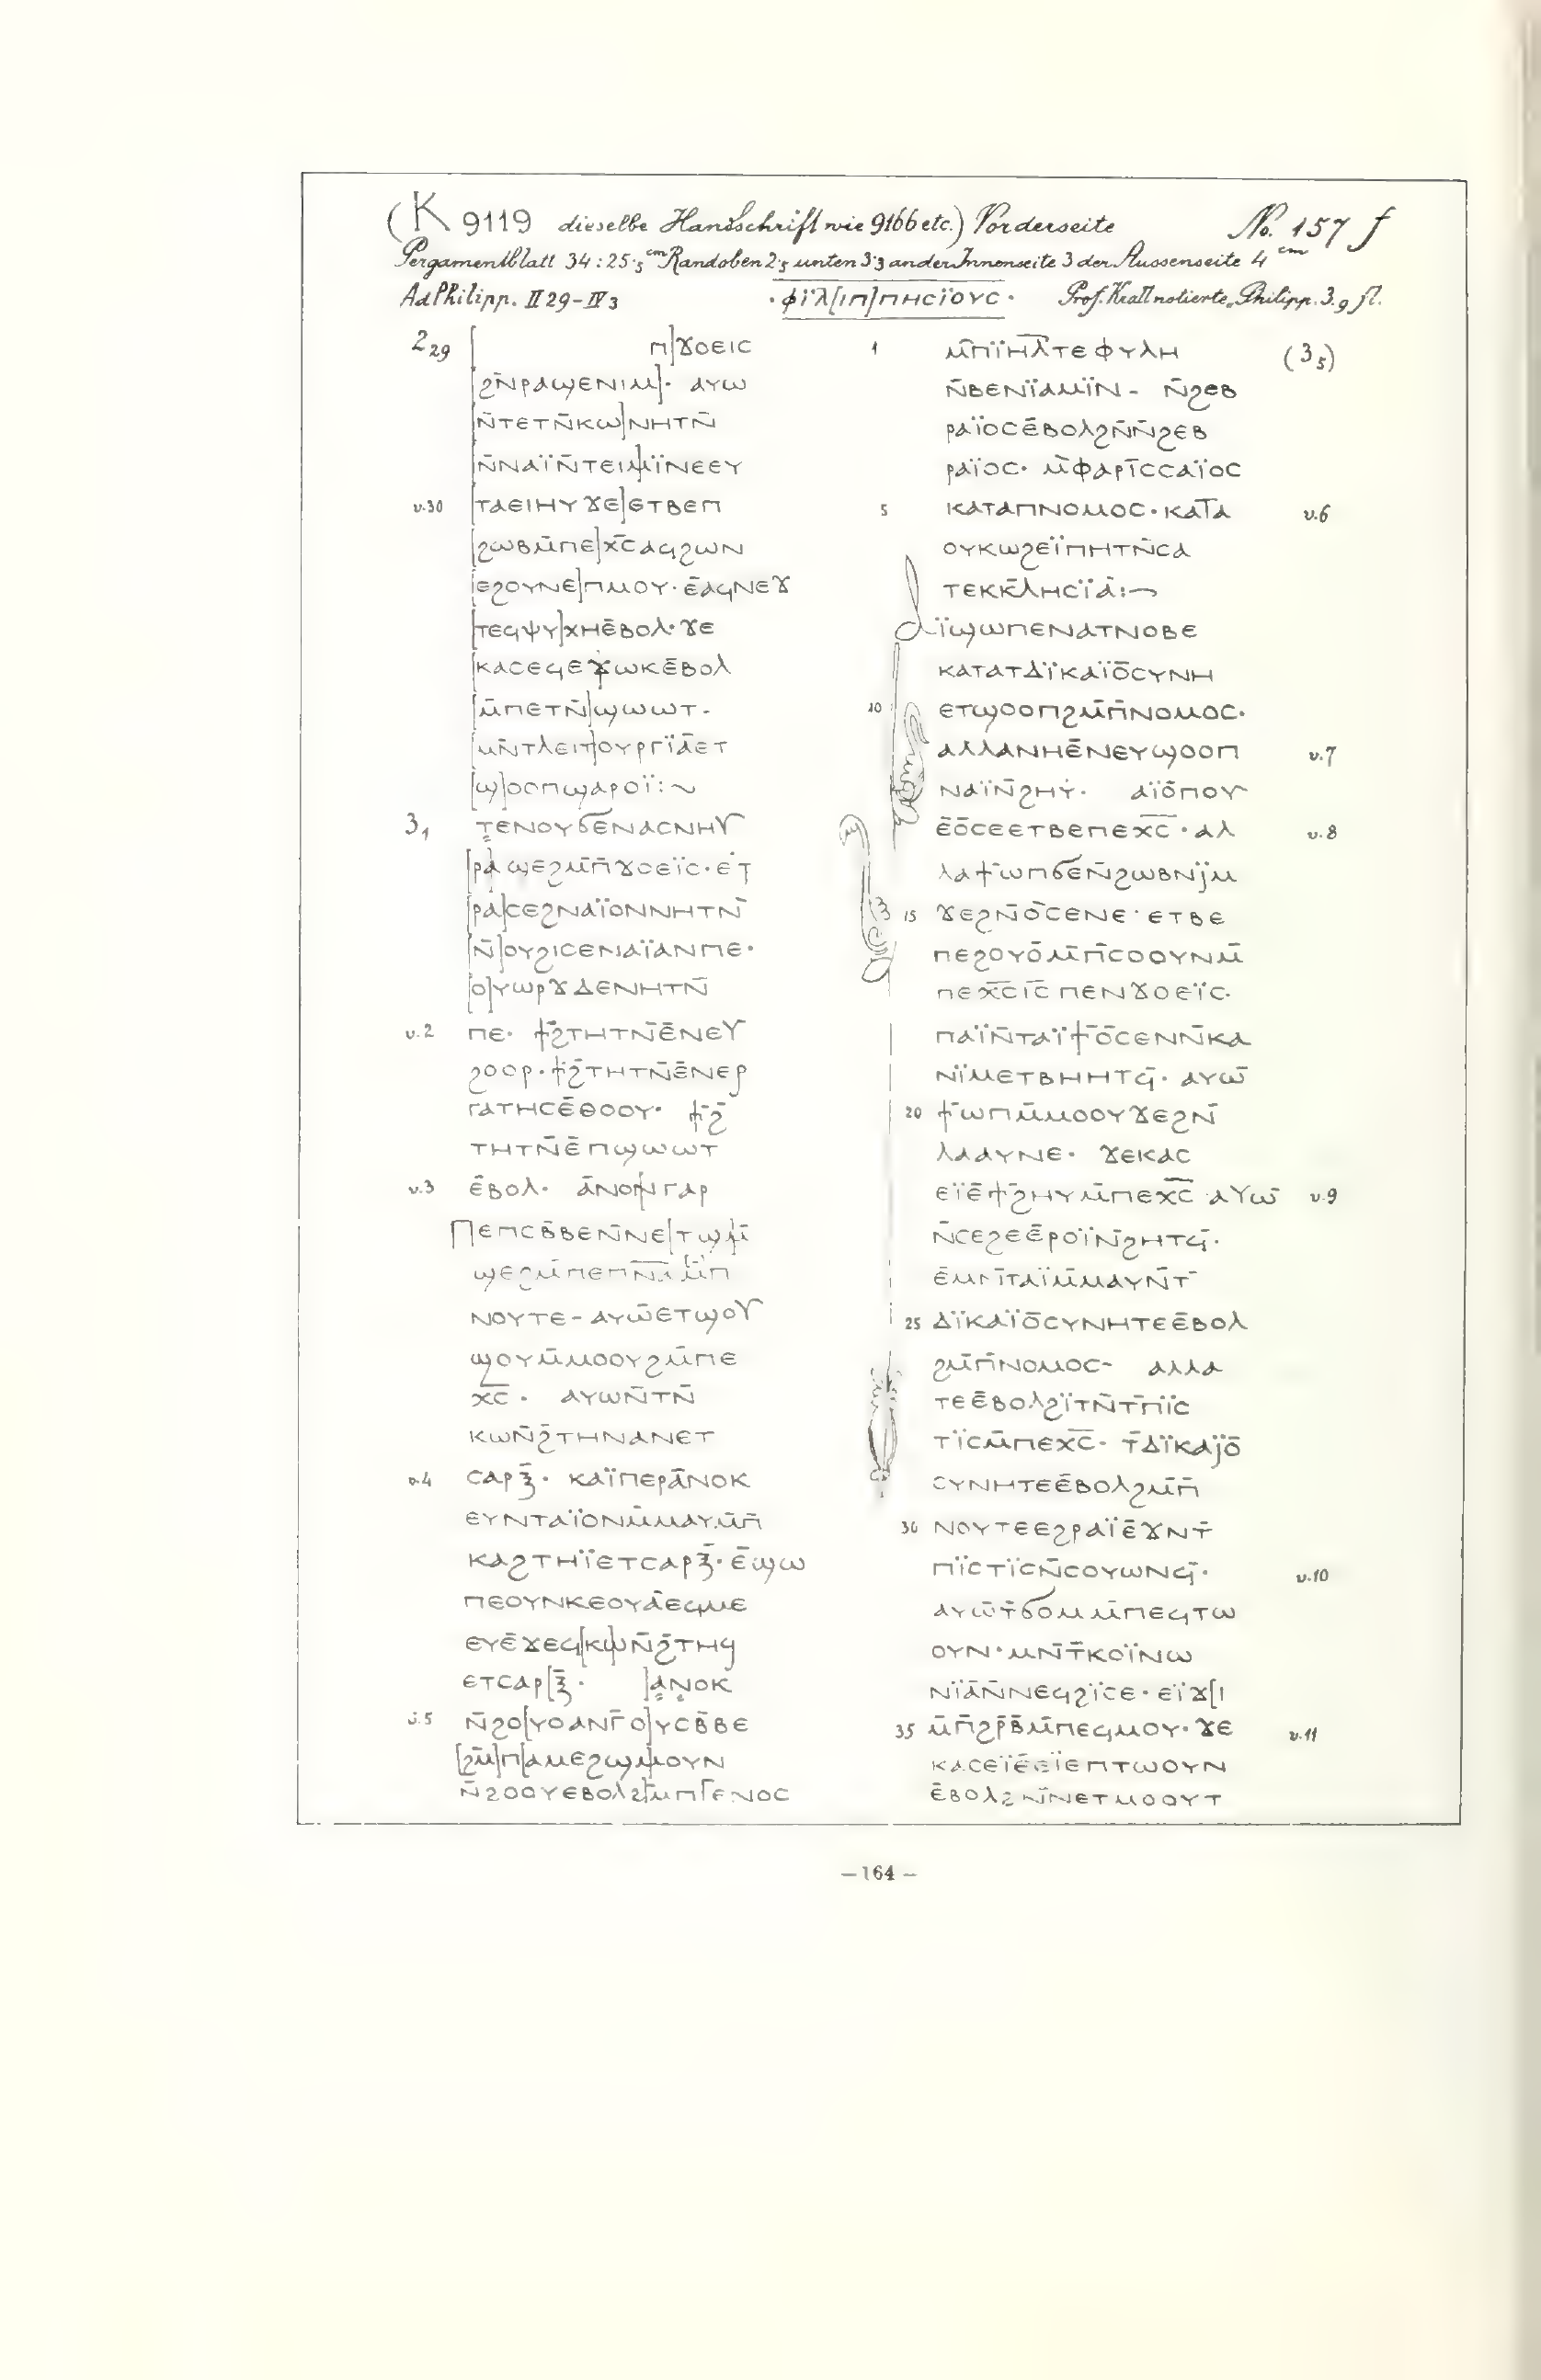 (K 9119 dieselbe Handschrift wie 9166 etc.) Vorderseite No. 157 f
Pergamentblatt 34 : 25·5 cm Rand oben 2·5 unten 3·3 an der Innenseite 3 der Aussenseite 4 cm
Ad Philipp. II 29–IV 3 · ⲫⲓ̈ⲗ[ⲓⲡ]ⲡⲏⲥⲓ̈ⲟⲩⲥ · Prof. Krall notierte „Philipp. 3.9 fl.
2 29 [ ⲡ]ϫⲟⲉⲓⲥ
[ϩⲛ̄ⲣⲁϣⲉⲛⲓⲙ]· ⲁⲩⲱ
[ⲛ̄ⲧⲉⲧⲛ̄ⲕⲱ]ⲛⲏⲧⲛ̄
[ⲛ̄ⲛⲁⲓ̈ⲛ̄ⲧⲉⲓⲙ]ⲓ̈ⲛⲉⲉⲩ
v.30 [ⲧⲁⲉⲓⲏⲩϫⲉ]ⲉⲧⲃⲉⲡ
[ϩⲱⲃⲙ̄ⲡⲉ]ⲭ̅ⲥ̅ⲁϥϩⲱⲛ
[ⲉϩⲟⲩⲛⲉ]ⲡⲙⲟⲩ· ⲉ̄ⲁϥⲛⲉϫ
[ⲧⲉϥⲯⲩ]ⲭⲏⲉ̄ⲃⲟⲗ· ϫⲉ
[ⲕⲁⲥⲉϥⲉϫⲱⲕⲉ̄ⲃⲟⲗ
[ⲙ̄ⲡⲉⲧⲛ̄]ϣⲱⲱⲧ·
[ⲙⲛ̄ⲧⲗⲉⲓⲧ]ⲟⲩⲣⲅⲓ̈ⲁ̄ⲉⲧ
[ϣ]ⲟⲟⲡϣⲁⲣⲟⲓ̈:~
3 1 ⲧ̣ⲉⲛⲟⲩϭⲉⲛⲁⲥⲛⲏⲩ
[ⲣⲁ]ϣⲉϩⲙ̄ⲡ̄ϫⲟⲉⲓ̈ⲥ· ⲉⲧ
[ⲣⲁ]ⲥⲉϩⲛⲁⲓ̈ⲟⲛⲛⲏⲧⲛ̄
[ⲛ̄]ⲟⲩϩⲓⲥⲉⲛⲁⲓ̈ⲁⲛⲡⲉ·
[ⲟ]ⲩⲱⲣϫⲇⲉⲛⲏⲧⲛ̄
v.2 ⲡⲉ· ϯϩ̄ⲧⲏⲧⲛ̄ⲉ̄ⲛⲉⲩ
ϩⲟⲟⲣ· ϯϩ̄ⲧⲏⲧⲛ̄ⲉ̄ⲛⲉⲣ
ⲅⲁⲧⲏⲥⲉ̄ⲑⲟⲟⲩ· ϯϩ̄
ⲧⲏⲧⲛ̄ⲉ̄ⲡϣⲱⲱⲧ
v.3 ⲉ̄ⲃⲟⲗ· ⲁ̄ⲛⲟⲛⲅⲁⲣ
ⲡⲉⲡⲥⲃ̄ⲃⲉⲛ̄ⲛⲉ[ⲧϣⲙ̄
ϣⲉϩⲙ̄ⲡⲉⲡⲛ̅ⲁ̅ⲙ̄ⲡ
ⲛⲟⲩⲧⲉ- ⲁⲩⲱ̄ⲉⲧϣⲟⲩ
ϣⲟⲩⲙ̄ⲙⲟⲟⲩϩⲙ̄ⲡⲉ
ⲭ̅ⲥ̅· ⲁⲩⲱⲛ̄ⲧⲛ̄
ⲕⲱⲛ̄ϩ̄ⲧⲏⲛⲁⲛⲉⲧ
v.4 ⲥⲁⲣⲝ̄· ⲕⲁⲓ̈ⲡⲉⲣⲁ̄ⲛⲟⲕ
ⲉⲩⲛⲧⲁⲓ̈ⲟⲛⲙ̄ⲙⲁⲩⲙ̄ⲡ̄
ⲕⲁϩⲧⲏⲓ̈ⲉⲧⲥⲁⲣⲝ̄· ⲉ̄ϣⲱ
ⲡⲉⲟⲩⲛⲕⲉⲟⲩⲁ̄ⲉϥⲙⲉ
ⲉⲩⲉ̄ϫⲉϥ[ⲕ]ⲱⲛ̄ϩ̄ⲧⲏϥ
ⲉⲧⲥⲁⲣ[ⲝ̄· ]ⲁ̣ⲛ̣ⲟⲕ
v.5 ⲛ̄ϩⲟ[ⲩⲟⲁⲛⲅ̄ⲟ]ⲩⲥⲃ̄ⲃⲉ
[ϩⲙ̄]ⲡ[ⲁⲙⲉϩϣⲙⲟⲩⲛ
ⲛ̄ϩⲟⲟⲩⲉⲃⲟⲗϩⲙ̄ⲡⲅⲉⲛⲟⲥ
1 ⲙ̄ⲡⲓ̈ⲏ̅ⲗ̅ⲧⲉⲫⲩⲗⲏ (3 5)
ⲛ̄ⲃⲉⲛⲓ̈ⲁⲙⲓ̈ⲛ- ⲛ̄ϩⲉⲃ
ⲣⲁⲓ̈ⲟⲥⲉ̄ⲃⲟⲗϩⲛ̄ⲛ̄ϩⲉⲃ
ⲣⲁⲓ̈ⲟⲥ· ⲙ̄ⲫⲁⲣⲓ̄ⲥⲥⲁⲓ̈ⲟⲥ
5 ⲕⲁⲧⲁⲡⲛⲟⲙⲟⲥ· ⲕⲁⲧⲁ v.6
ⲟⲩⲕⲱϩⲉⲓ̈ⲡⲏⲧⲛ̄ⲥⲁ
ⲧⲉⲕⲕⲗ̄ⲏⲥⲓ̈ⲁ̄:~
ⲁⲓ̈ϣⲱⲡⲉⲛⲁⲧⲛⲟⲃⲉ
ⲕⲁⲧⲁⲧⲇⲓ̈ⲕⲁⲓ̈ⲟ̄ⲥⲩⲛⲏ
10 ⲉⲧϣⲟⲟⲡϩⲙ̄ⲡ̄ⲛⲟⲙⲟⲥ·
ⲁⲗⲗⲁⲛⲏⲉ̄ⲛⲉⲩϣⲟⲟⲡ v.7
ⲛⲁⲓ̈ⲛ̄ϩⲏⲩ· ⲁⲓ̈ⲟ̄ⲡⲟⲩ
ⲉ̄ⲟ̄ⲥⲉⲉⲧⲃⲉⲡⲉⲭ̅ⲥ̅· ⲁⲗ v.8
ⲗⲁϯⲱⲡϭⲉⲛ̄ϩⲱⲃⲛⲓ̈ⲙ
15 ϫⲉϩⲛ̄ⲟ̄ⲥⲉⲛⲉ· ⲉⲧⲃⲉ
ⲡⲉϩⲟⲩⲟ̄ⲙ̄ⲡ̄ⲥⲟⲟⲩⲛⲙ̄
ⲡⲉⲭ̅ⲥ̅ⲓ̅ⲥ̅ⲡⲉⲛϫⲟⲉⲓ̈ⲥ·
ⲡⲁⲓ̈ⲛ̄ⲧⲁⲓ̈ϯⲟ̄ⲥⲉⲛⲛ̄ⲕⲁ
ⲛⲓ̈ⲙⲉⲧⲃⲏⲏⲧϥ̄· ⲁⲩⲱ̄
20 ϯⲱⲡⲙ̄ⲙⲟⲟⲩϫⲉϩⲛ̄
ⲗⲁⲁⲩⲛⲉ· ϫⲉⲕⲁⲥ
ⲉⲓ̈ⲉ̄ϯϩⲏⲩⲙ̄ⲡⲉⲭ̅ⲥ̅ ⲁⲩⲱ̄ v.9
ⲛ̄ⲥⲉϩⲉⲉ̄ⲣⲟⲓ̈ⲛ̄ϩⲏⲧϥ̄·
ⲉ̄ⲙⲛ̄ⲧⲁⲓ̈ⲙ̄ⲙⲁⲩⲛ̄ⲧ̄
25 ⲇⲓ̈ⲕⲁⲓ̈ⲟ̄ⲥⲩⲛⲏⲧⲉⲉ̄ⲃⲟⲗ
ϩⲙ̄ⲡ̄ⲛⲟⲙⲟⲥ- ⲁⲗⲗⲁ
ⲧⲉⲉ̄ⲃⲟⲗϩⲓ̈ⲧⲛ̄ⲧ̄ⲡⲓ̈ⲥ
ⲧⲓ̈ⲥⲙ̄ⲡⲉⲭ̅ⲥ̅· ⲧ̄ⲇⲓ̈ⲕⲁⲓ̈ⲟ̄
ⲥⲩⲛⲏⲧⲉⲉ̄ⲃⲟⲗϩⲙ̄ⲡ̄
30 ⲛⲟⲩⲧⲉⲉϩⲣⲁⲓ̈ⲉ̄ϫⲛⲧ̄
ⲡⲓ̈ⲥⲧⲓ̈ⲥⲛ̄ⲥⲟⲩⲱⲛϥ̄· v.10
ⲁⲩⲱ̄ⲧ̄ϭⲟⲙⲙ̄ⲡⲉϥⲧⲱ
ⲟⲩⲛ· ⲙⲛ̄ⲧ̄ⲕⲟⲓ̈ⲛⲱ
ⲛⲓ̈ⲁ̄ⲛ̄ⲛⲉϥϩⲓ̈ⲥⲉ· ⲉⲓ̈ϫ[ⲓ
35 ⲙ̄ⲡ̄ϩⲣ̄ⲃ̄ⲙ̄ⲡⲉϥⲙⲟⲩ· ϫⲉ v.11
ⲕⲁⲥⲉⲓ̈ⲉ̄ⲉⲓ̈ⲉⲡⲧⲱⲟⲩⲛ
ⲉ̄ⲃⲟⲗϩⲛ̄ⲛⲉⲧⲙⲟⲟⲩⲧ
– 164 –